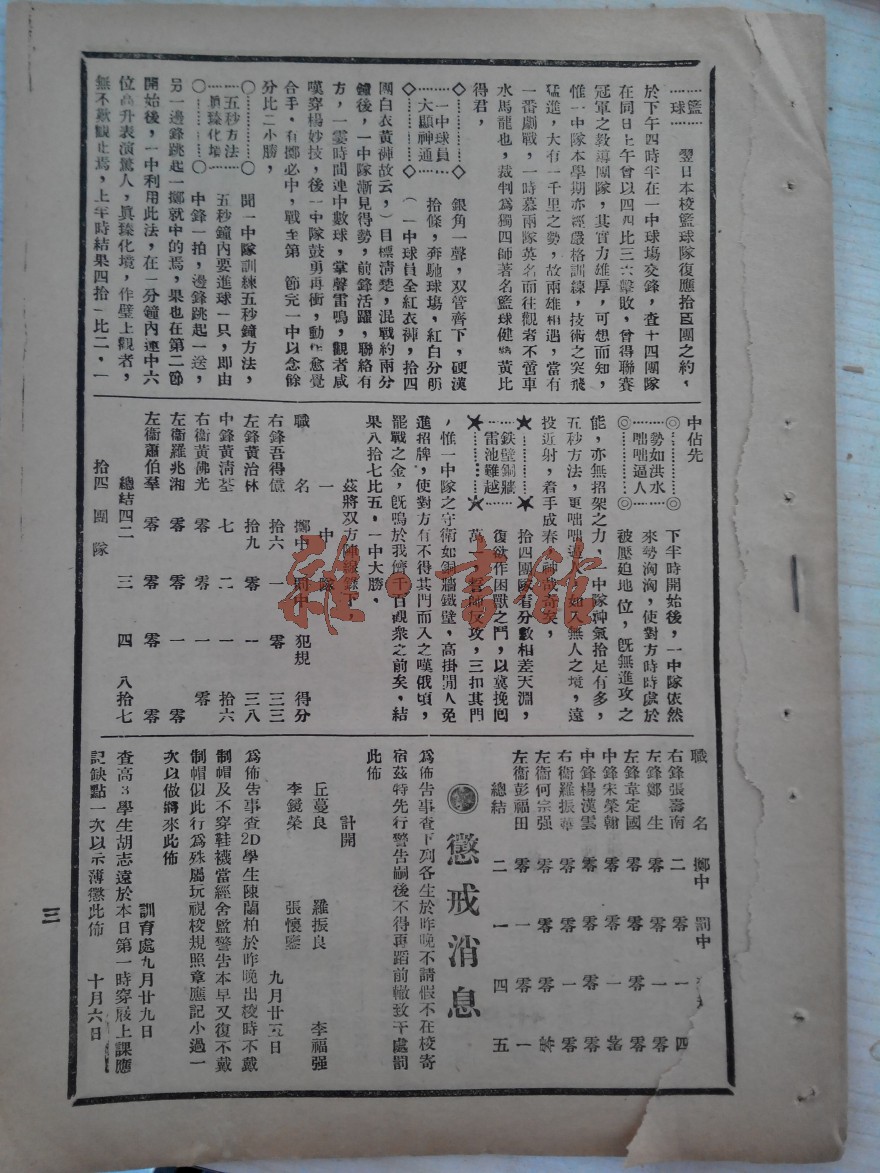 籃球
翌日本校籃球隊復應拾四團之約，
於下午四時半在一中球場交鋒，查十四團隊
在同日上午曾以四四比三六擊敗，曾得聯賽
冠軍之教導團隊，其實力雄厚，可想而知，
惟一中隊本學期亦經嚴格訓練，技術之突飛
猛進，大有一千里之勢，故兩雄相遇，當有
一番劇戰，一時慕兩隊英名而往觀者不啻車
水馬龍也，裁判爲獨四師著名籃球健將黃比
得君，
一中球員
大顯神通
銀角一聲，双管齊下，硬漢
拾條，奔馳球場，紅白分明
（一中球員全紅衣褲，拾四
團白衣黃褲故云，）目標淸楚，混戰約兩分
鐘後，一中隊漸見得勢，前鋒活躍，聯絡有
方，一霎時間連中數球，掌聲雷鳴，觀者咸
嘆穿楊妙技，後一中隊鼓勇再衝，動作愈覺
合手，有擲必中，戰至第 節完一中以念餘
分比二小勝，
五秒方法
眞臻化境
聞一中隊訓練五秒鐘方法，
五秒鐘內要進球一只，即由
中鋒一拍，邊鋒跳起一送，
另一邊鋒跳起一擲就中的焉，果也在第二節
開始後，一中利用此法，在一分鐘內連中六
位高升表演驚人，眞臻化境，作壁上觀者，
無不歎觀止焉，上半時結果四拾一比二，一
中佔先
勢如洪水
咄咄逼人
下半時開始後，一中隊依然
來勢洶洶，使對方時時處於
被壓迫地位，旣無進攻之
能，亦無招架之力，一中隊神氣拾足有多，
五秒方法，更咄咄逼人，如入無人之境，遠
投近射，着手成春，神哉奇矣，
鉄壁銅牆
雷池難越
拾四團隊看分數相差天淵，
復欲作困獸之鬥，以冀挽囘
萬一，誓師反攻，三扣其門
，惟一中隊之守衛如銅牆鐵壁，高掛閒人免
進招牌，使對方有不得其門而入之嘆俄頃，
罷戰之金，旣鳴於我儕千百觀衆之前矣，結
果八拾七比五，一中大勝，
茲將双方陣線錄下
一中隊
職 名 擲中 罰中 犯規 得分
右鋒吾得億 拾六 一 零 三三
左鋒黃治林 拾九 零 一 三八
中鋒黃淸荃 七 二 一 拾六
右衛黃佛光 零 零 一 零
左衛羅兆湘 零 零 一 零
左衛蕭伯羣 零 零 零 零
總結四二 三 四 八拾七
拾四團隊
職 名 擲中 罰中
右鋒張壽南 二 零 一 四
左鋒鄭生 零 零 一 零
左鋒韋定國 零 零 零 零
中鋒宋榮翰 零 零 一 零
中鋒楊漢雲 零 零 零 零
右衛羅振華 零 零 一 零
左衛何宗强 零 零 零 零
左衛彭福田 零 一 零 一
總結 二 一 四 五
懲戒消息
爲佈告事查下列各生於昨晚不請假不在校寄
宿茲特先行警告嗣後不得再蹈前轍致干處罰
此佈
計開
丘蔓良 羅振良 李福强
李鏡榮 張懷鑒
九月廿五日
爲佈告事查2D學生陳蘭柏於昨晚出校時不戴
制帽及不穿鞋襪當經舍監警告本早又復不戴
制帽似此行爲殊屬玩視校規照章應記小過一
次以儆將來此佈
訓育處九月廿九日
查高3學生胡志遠於本日第一時穿屐上課應
記缺點一次以示薄懲此佈 十月六日
三
雜·書館